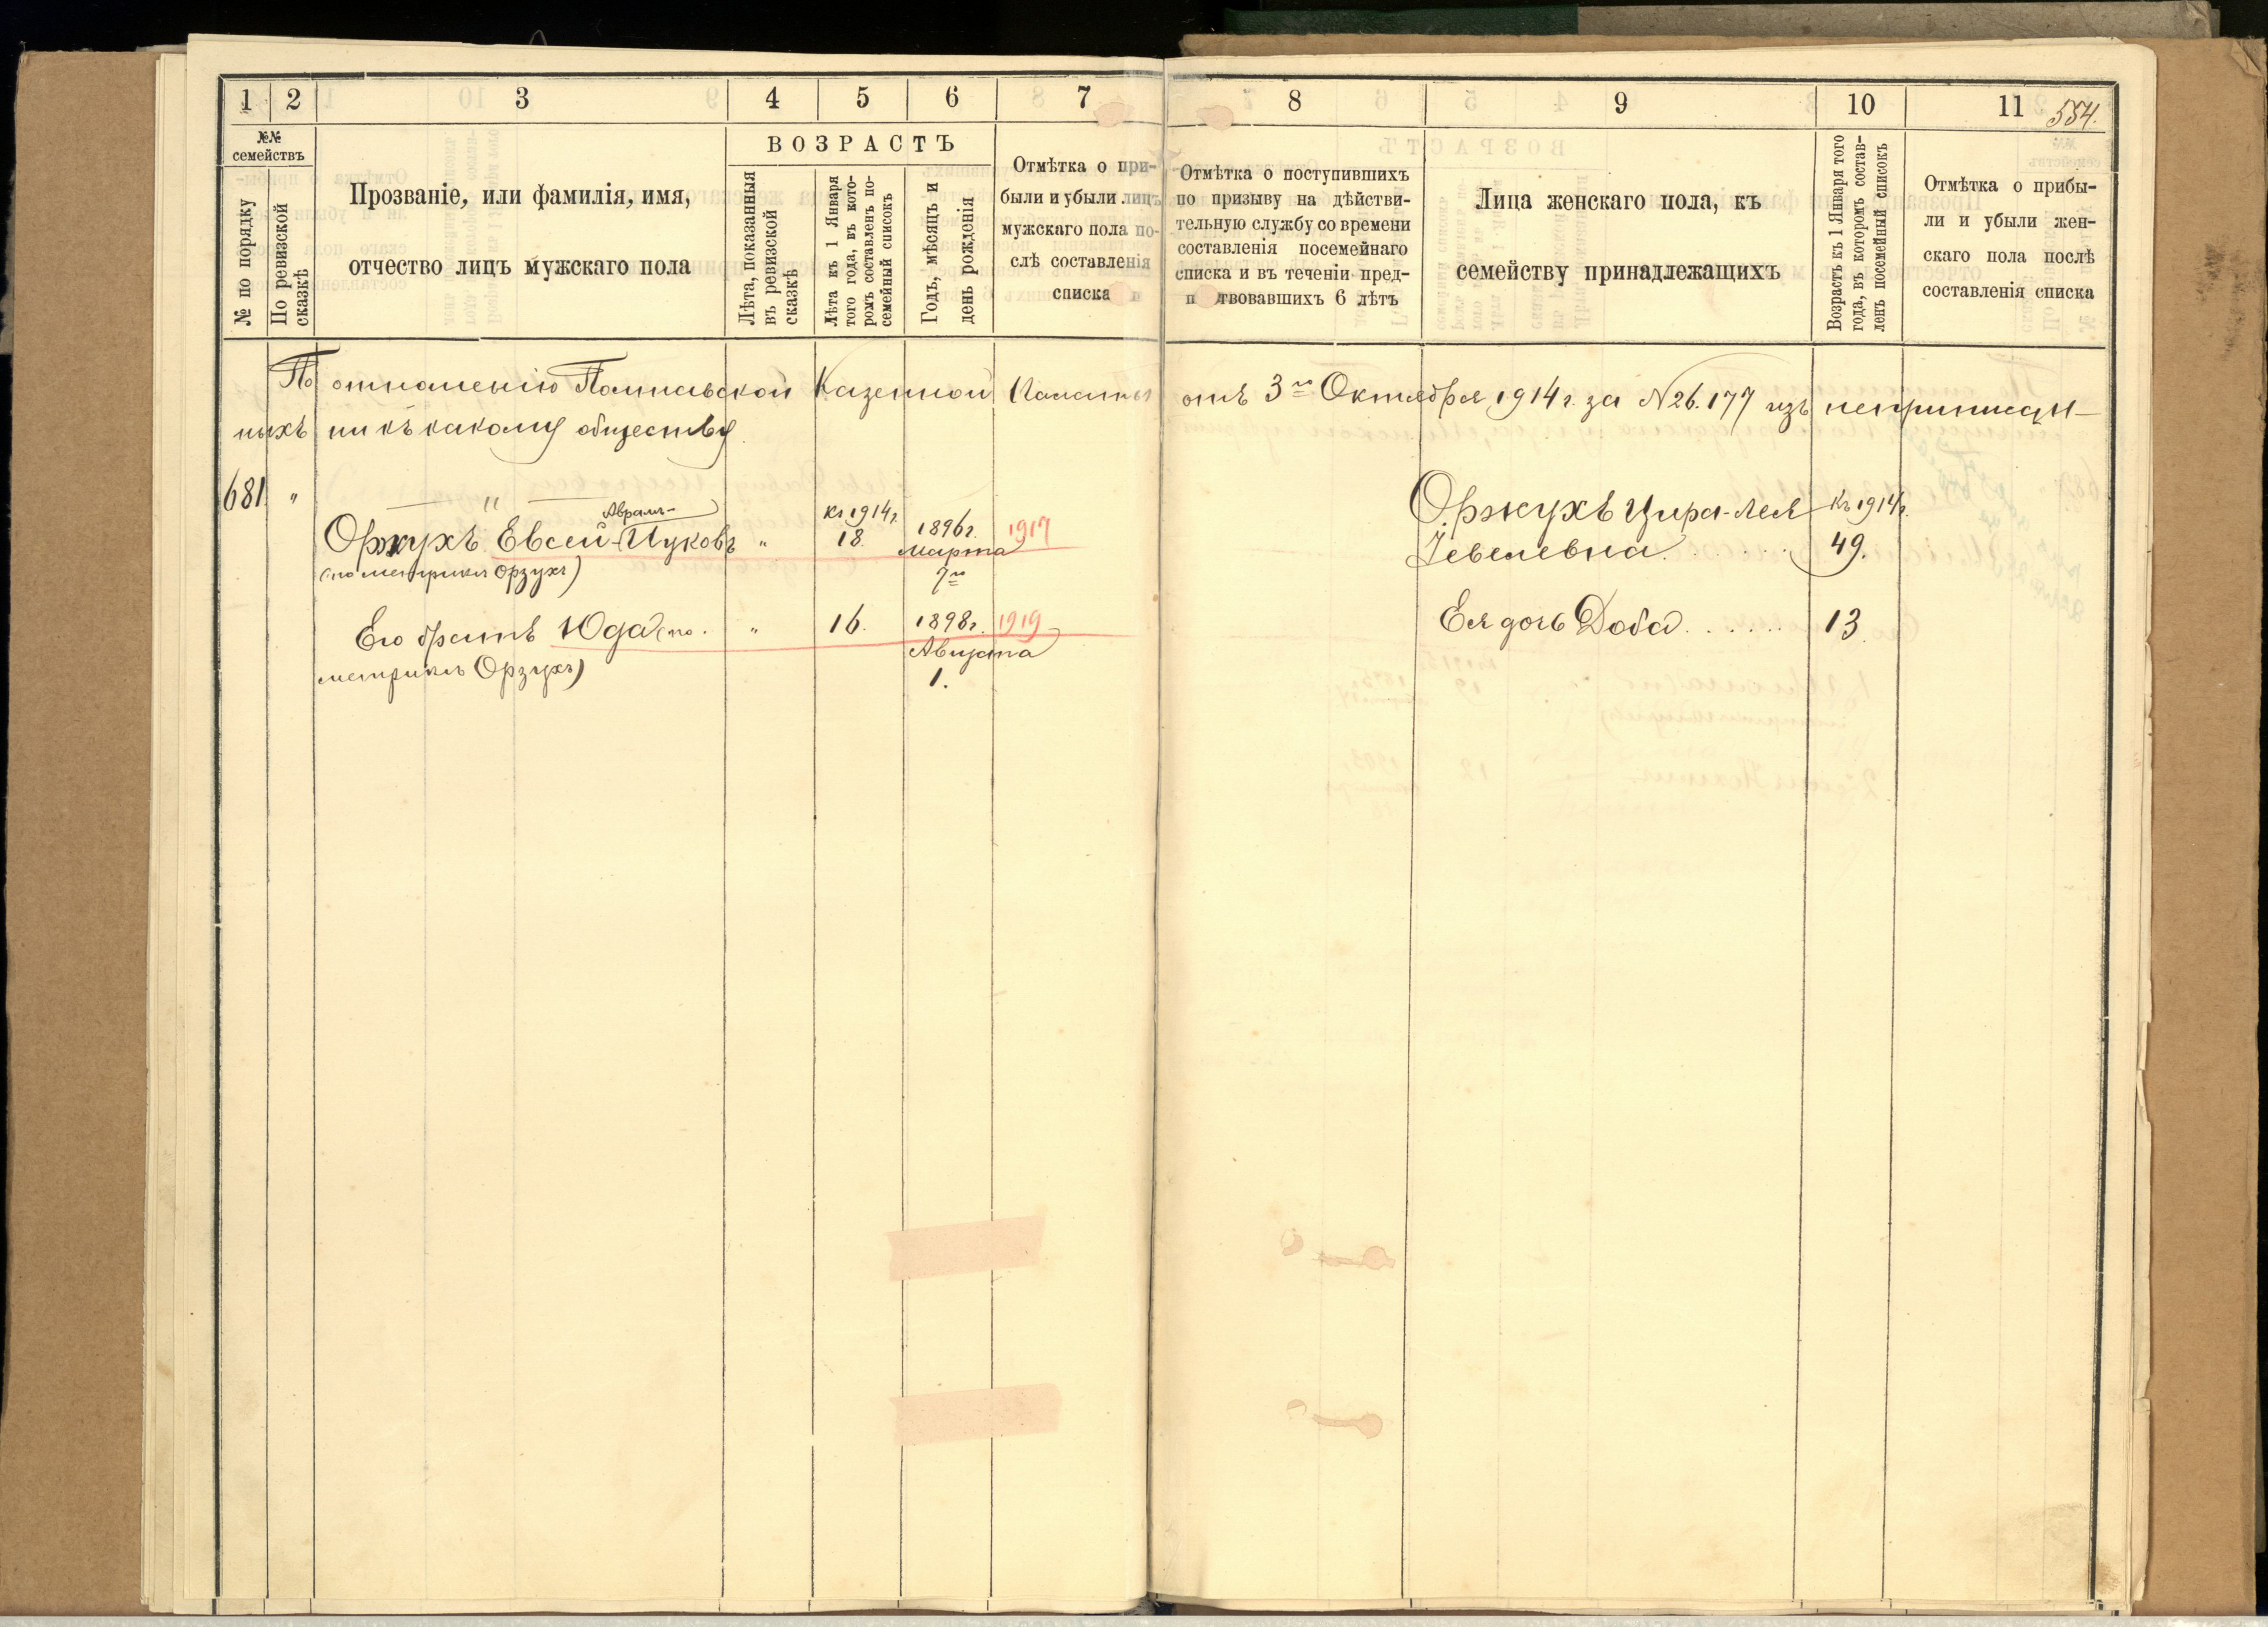 1 2 3 4 5 6 7 8 9 10 11 554.
№№ семействъ
№ по порядку
По ревизской сказкѣ
Прозваніе, или фамилія, имя,
отчество лицъ мужскаго пола
ВОЗРАСТЪ
Лѣта, показанныя
въ ревизской
сказкѣ
Лѣта къ 1 Января
того года, въ кото-
ромъ составленъ по-
семейный списокъ
Годъ, мѣсяцъ и
день рожденія
Отмѣтка о при-
были и убыли лицъ
мужскаго пола по-
слѣ составленія
списка
Отмѣтка о поступившихъ
по призыву на дѣйстви-
тельную службу со времени
составленія посемейнаго
списка и въ теченіи пред-
п твовавшихъ 6 лѣтъ
Лица женскаго пола, къ
семейству принадлежащихъ
Возрастъ къ 1 Января того
года, въ которомъ состав-
ленъ посемейный списокъ
Отмѣтка о прибы-
ли и убыли жен-
скаго пола послѣ
составленія списка
По отношенію Казенной Палаты отъ 3го Октября 1914 г. за N 26.177 изъ неприписан-
ныхъ ни къ какому обществу
681 "
"
Авраам-
Оржухъ Евсей-Ицковъ " къ 1914 г. 18. 1896 г. марта 7го 1917
(по метрикѣ Орзухъ)
Его братъ Юда (по " 16. 1898 г. Августа 1. 1919
метрикѣ Орзухъ)
Оржухъ Цира-Лея къ 1914 г.
Гевелевна . . . . . 49.
Ея дочь Доба . . . . . . 13